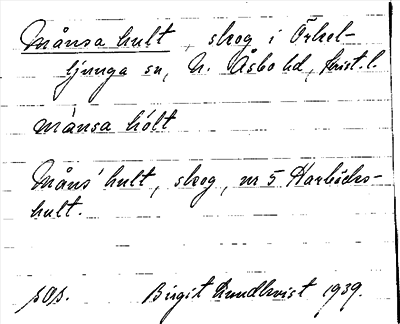 Månsa hult, skog i Örkel-
ljunga sn, N. Åsbo hd, Krist. l.
månsa hólt
Måns' hult, skog, nr 5 Harbäcks-
hult.
sOs. Birgit Lundkvist 1939.